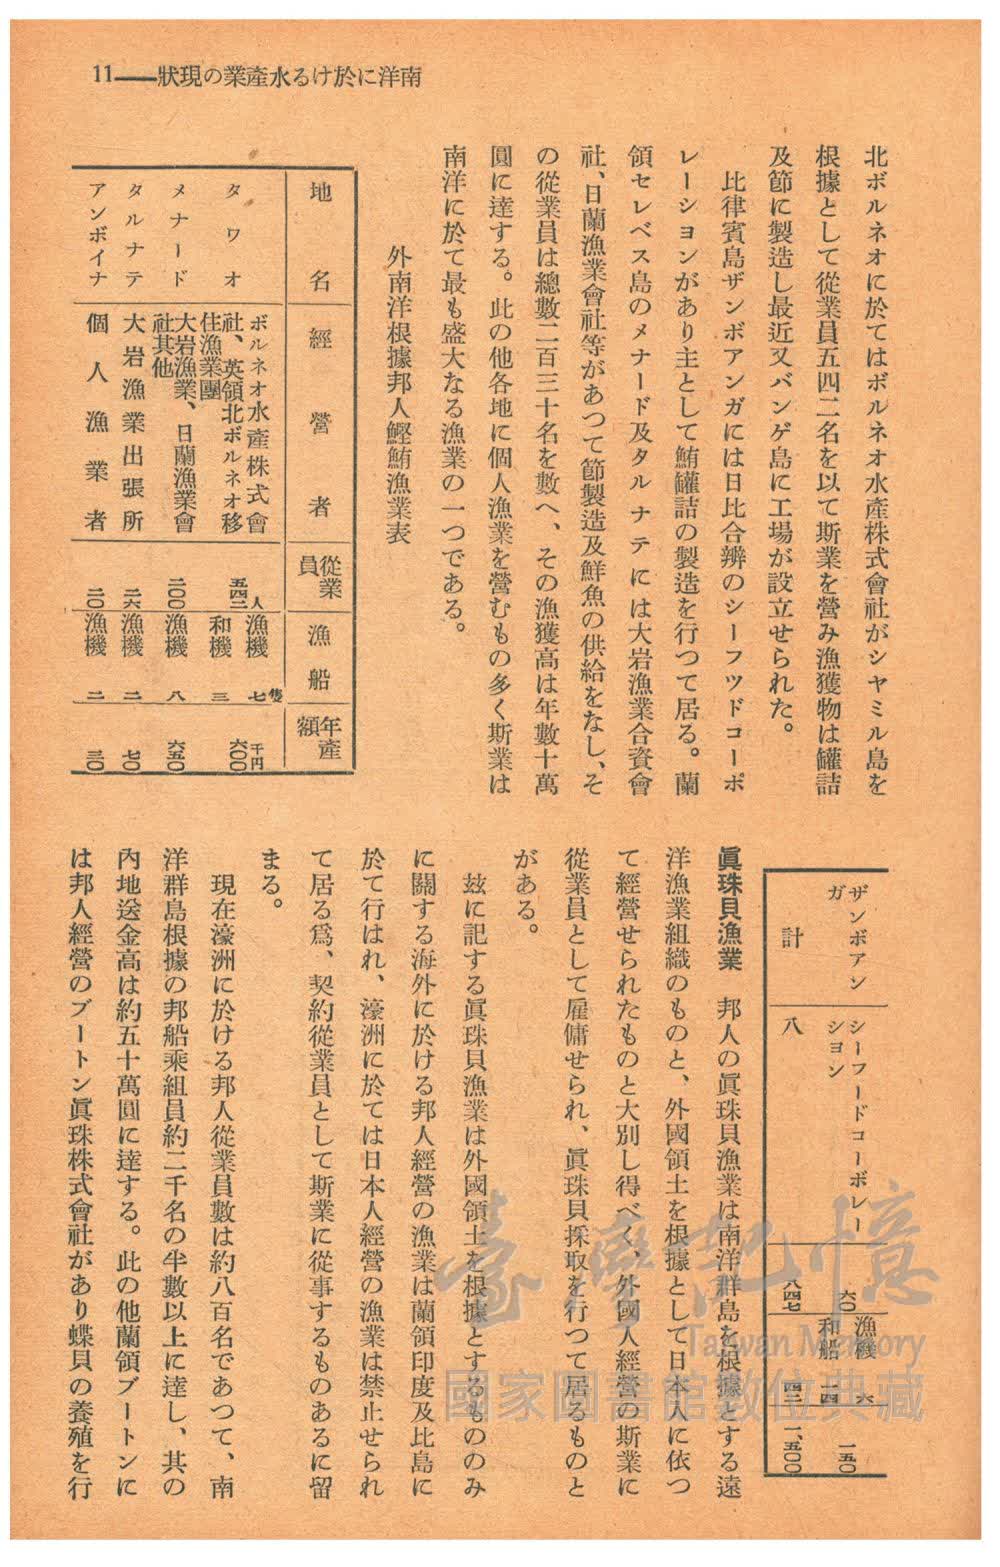 南洋に於ける水產業の現狀――11
北ボルネオに於てはボルネオ水產株式會社がシヤミル島を
根據として從業員五四二名を以て斯業を營み漁獲物は罐詰
及節に製造し最近又バンゲ島に工場が設立せられた。
比律賓島ザンボアンガには日比合辨のシーフツドコーポ
レーシヨンがあり主として鮪罐詰の製造を行つて居る。蘭
領セレベス島のメナード及タルナテには大岩漁業合資會
社、日蘭漁業會社等があつて節製造及鮮魚の供給をなし、そ
の從業員は總數二百三十名を數へ、その漁獲高は年數十萬
圓に達する。此の他各地に個人漁業を營むもの多く斯業は
南洋に於て最も盛大なる漁業の一つである。
外南洋根據邦人鰹鮪漁業表
地名 經營者 從業員 漁船 年產額
タワオ ボルネオ水產株式會 五四二人 漁機 七隻 六〇〇千円
社、英領北ボルネオ移 和機 三
住漁業團
メナード 大岩漁業、日蘭漁業會 二〇〇 漁機 八 六五〇
社其他
タルナテ 大岩漁業出張所 二六 漁機 二 七〇
アンボイナ 個人漁業者 二〇 漁機 二 三〇
ザンボアン シーフードコーポレー 六〇 漁機 六 一五〇
ガ シヨン 和船 一四
計 八 八四七 四二 一、五〇〇
眞珠貝漁業 邦人の眞珠貝漁業は南洋群島を根據とする遠
洋漁業組織のものと、外國領土を根據として日本人に依つ
て經營せられたものと大別し得べく、外國人經營の斯業に
從業員として雇傭せられ、眞珠貝採取を行つて居るものと
がある。
玆に記する眞珠貝漁業は外國領土を根據とするもののみ
に關する海外に於ける邦人經營の漁業は蘭領印度及比島に
於て行はれ、濠洲に於ては日本人經營の漁業は禁止せられ
て居る爲、契約從業員として斯業に從事するものあるに留
まる。
現在濠洲に於ける邦人從業員數は約八百名であつて、南
洋群島根據の邦船乘組員約二千名の半數以上に達し、其の
內地送金高は約五十萬圓に達する。此の他蘭領ブートンに
は邦人經營のブートン眞珠株式會社があり蝶貝の養殖を行
臺灣記憶
Taiwan Memory
國家圖書館數位典藏